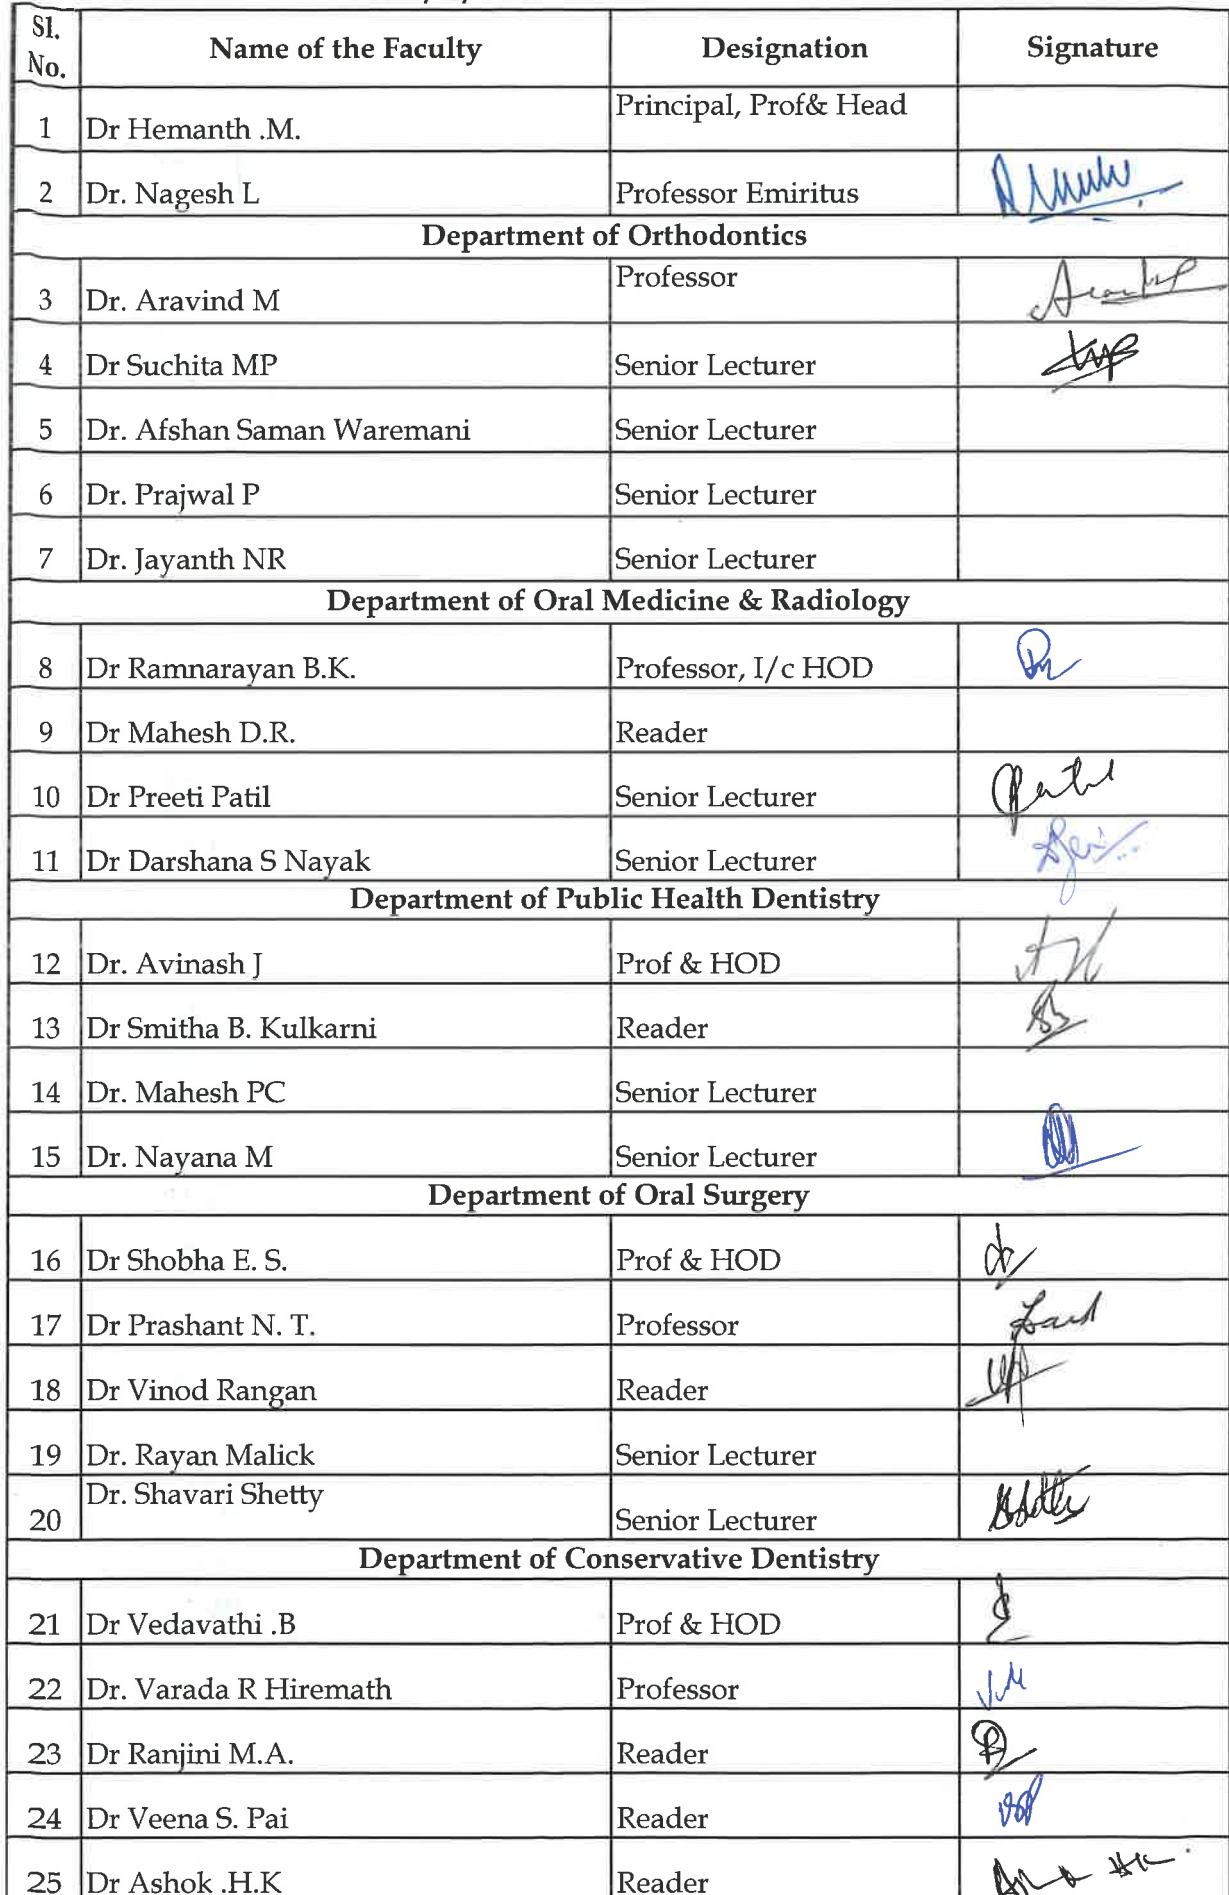 Sl. No. Name of the Faculty Designation Signature
1 Dr Hemanth .M. Principal, Prof& Head
2 Dr. Nagesh L Professor Emiritus
Department of Orthodontics
3 Dr. Aravind M Professor
4 Dr Suchita MP Senior Lecturer
5 Dr. Afshan Saman Waremani Senior Lecturer
6 Dr. Prajwal P Senior Lecturer
7 Dr. Jayanth NR Senior Lecturer
Department of Oral Medicine & Radiology
8 Dr Ramnarayan B.K. Professor, I/c HOD
9 Dr Mahesh D.R. Reader
10 Dr Preeti Patil Senior Lecturer
11 Dr Darshana S Nayak Senior Lecturer
Department of Public Health Dentistry
12 Dr. Avinash J Prof & HOD
13 Dr Smitha B. Kulkarni Reader
14 Dr. Mahesh PC Senior Lecturer
15 Dr. Nayana M Senior Lecturer
Department of Oral Surgery
16 Dr Shobha E. S. Prof & HOD
17 Dr Prashant N. T. Professor
18 Dr Vinod Rangan Reader
19 Dr. Rayan Malick Senior Lecturer
20 Dr. Shavari Shetty Senior Lecturer
Department of Conservative Dentistry
21 Dr Vedavathi .B Prof & HOD
22 Dr. Varada R Hiremath Professor
23 Dr Ranjini M.A. Reader
24 Dr Veena S. Pai Reader
25 Dr Ashok .H.K Reader